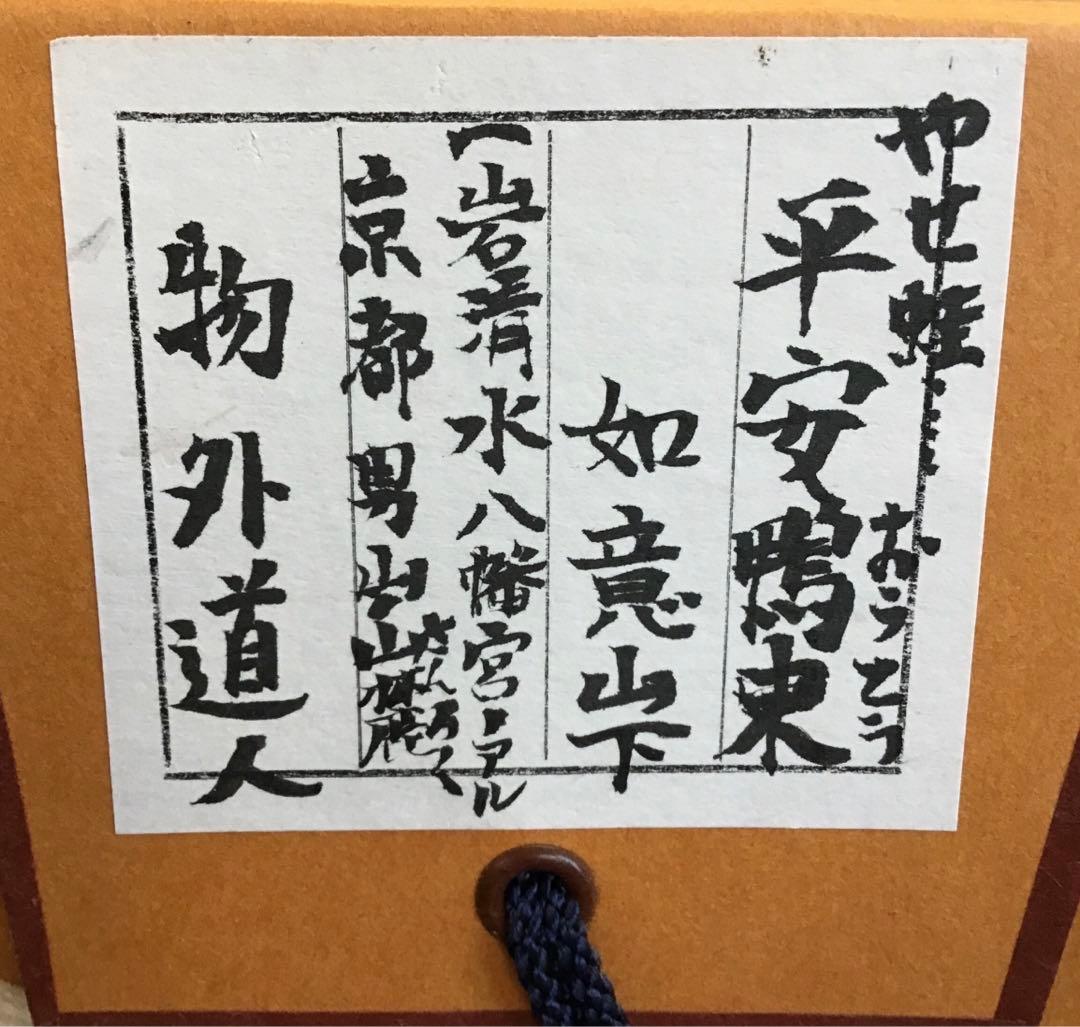 やせ蛙……
おうとう
平安鴨東
如意山下
(岩清水八幡宮トアル
京都男山
さんろく
山麓
物外道人